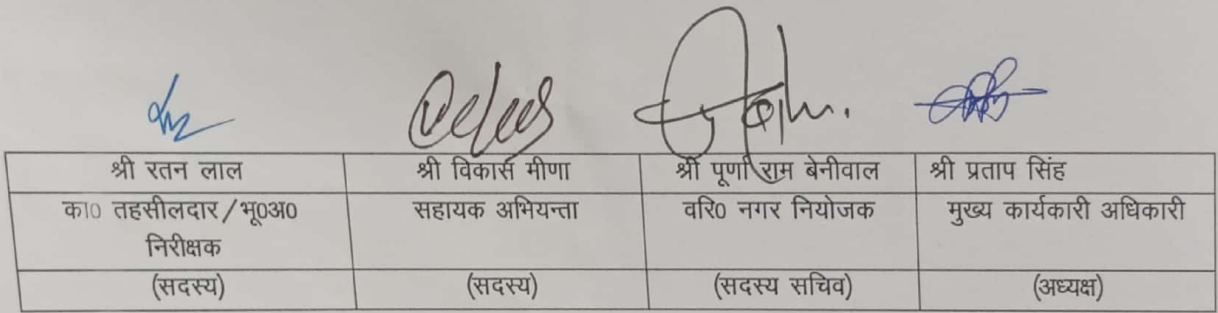 श्री रतन लाल श्री विकास मीणा श्री पूर्णा राम बेनीवाल श्री प्रताप सिंह
का0 तहसीलदार/भू0अ0 सहायक अभियन्ता वरि0 नगर नियोजक मुख्य कार्यकारी अधिकारी
निरीक्षक
(सदस्य) (सदस्य) (सदस्य सचिव) (अध्यक्ष)